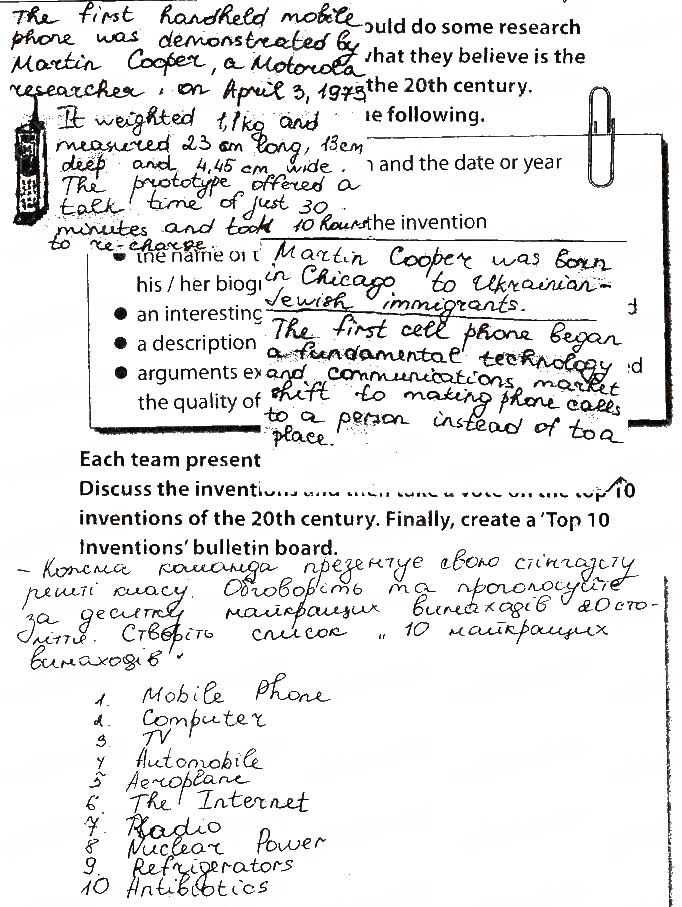 The first handheld mobile
phone was demonstrated by
Martin Cooper, a Motorola
researcher, on April 3, 1973
It weighted 1,1kg and
measured 23 cm long, 13cm
deep and 4,45 cm wide.
The prototype offered a
talk time of just 30
minutes and took 10 hours
to re-charge.
ould do some research
hat they believe is the
the 20th century.
e following.
n and the date or year
the invention
• the name of t
his / her biog
• an interesting
• a description
• arguments ex
the quality of
d
ed
Martin Cooper was born
in Chicago to Ukrainian-
Jewish immigrants.
The first cell phone began
a fundamental technology
and communications market
shift to making phone calls
to a person instead of to a
place.
Each team present
Discuss the inventions and then take a vote on the top 10
inventions of the 20th century. Finally, create a 'Top 10
Inventions' bulletin board.
– Кожна команда презентує свою стінгазету
решті класу. Обговоріть та проголосуйте
за десятку найкращих винаходів 20 сто-
ліття. Створіть список „10 найкращих
винаходів"
1. Mobile Phone
2. Computer
3 TV
4 Automobile
5 Aeroplane
6. The Internet
7. Radio
8 Nuclear Power
9. Refrigerators
10 Antibiotics